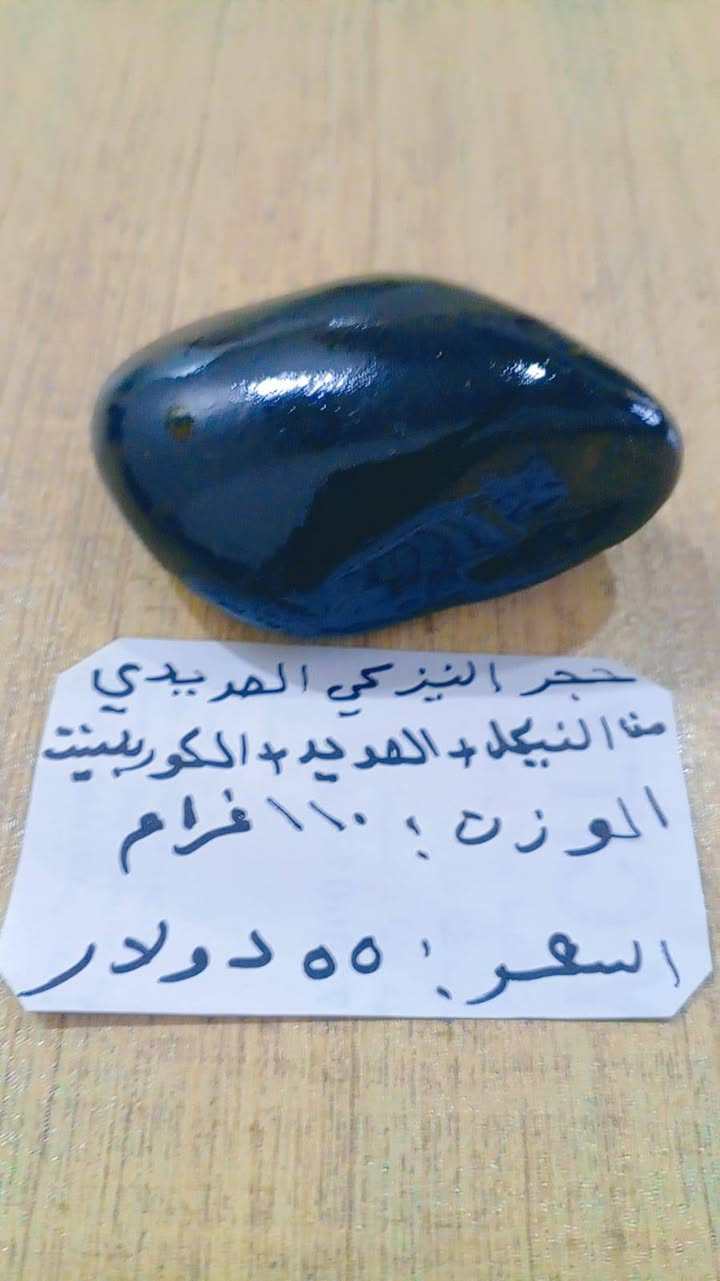 حجر النيزكي الحديدي
النيكل + الحديد +
الوزن : ١١٠ غرام
السعر : ٥٥ دولار